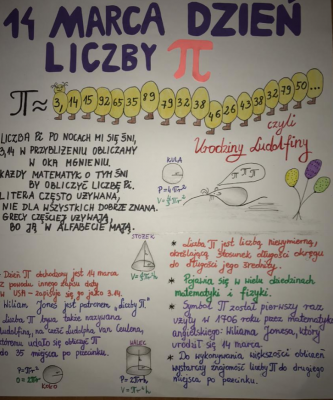 14 MARCA DZIEŃ
LICZBY π
π≈ 3, 14 15 92 65 35 89 79 32 38 46 26 43 38 32 79 50 ...
czyli
Urodziny Ludolfiny
LICZBA PI PO NOCACH MI SIĘ ŚNI,
3,14 W PRZYBLIŻENIU OBLICZAMY
W OKA MGNIENIU.
KAŻDY MATEMATYK O TYM ŚNI
BY OBLICZYĆ LICZBĘ PI.
LITERA CZĘSTO UŻYWANA,
NIE DLA WSZYSTKICH DOBRZE ZNANA.
GRECY CZĘŚCIEJ UŻYWAJĄ,
BO JĄ W ALFABECIE MAJĄ.
KULA
P=4πr²
π π π
STOŻEK
* Liczba π jest liczbą niewymierną,
określającą stosunek długości okręgu
do długości jego średnicy.
* Pojawia się w wielu dziedzinach
matematyki i fizyki.
* Symbol π został pierwszy raz
użyty w 1706 roku przez matematyka
angielskiego Wiliama Jonesa, który
urodził się 14 marca.
* Do wykonywania większości obliczeń
wystarczy znajomość liczby π do drugiego
miejsca po przecinku.
* Dzień π obchodzony jest 14 marca
z powodu innego zapisu daty
w USA - zapisuje się go jako 3.14.
Wiliam Jones jest patronem „Liczby π"
Liczba π bywa także nazywana
ludolfiną, na cześć Ludolpha Van Ceulena,
któremu udało się obliczyć π
do 35 miejsca po przecinku.
P=πr²
O=2πr
KOŁO
WALEC
P=2πrh
V=πr²h